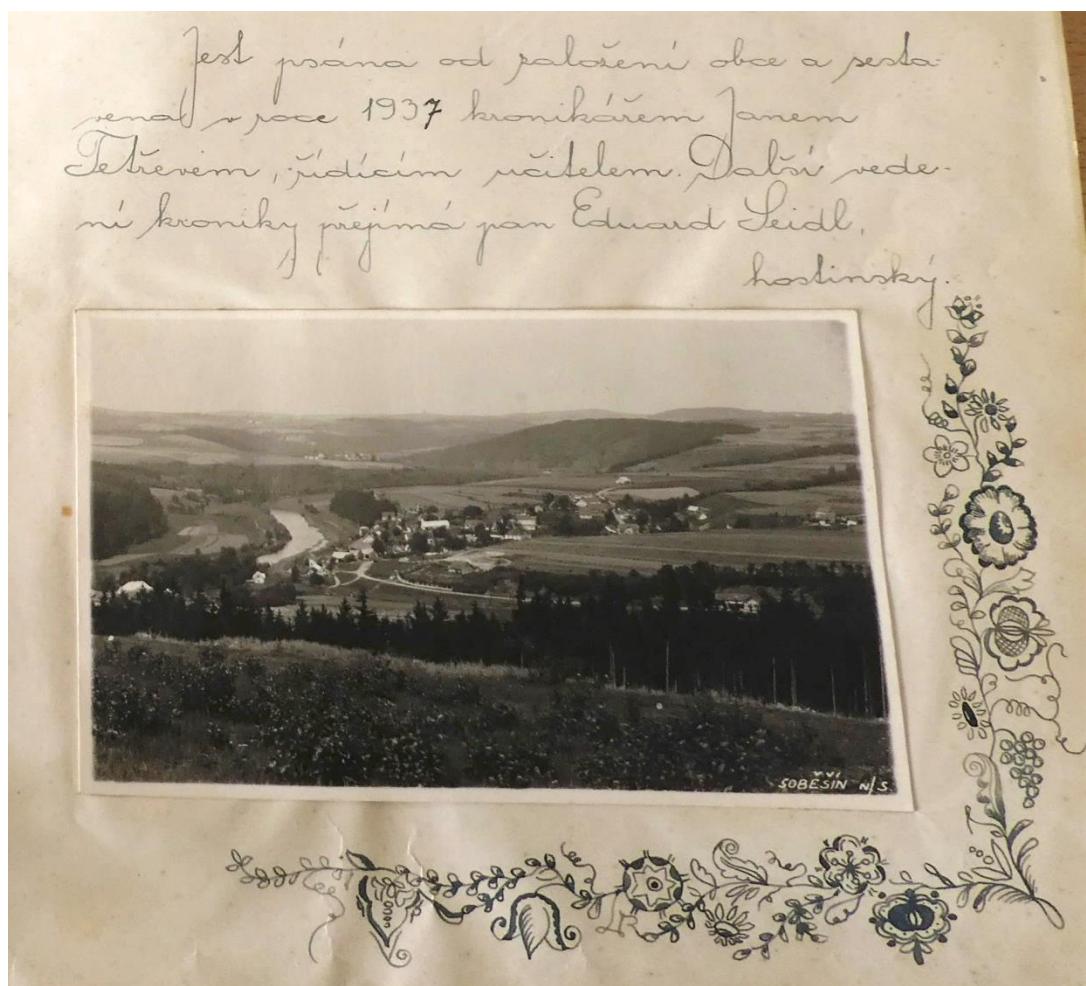 Jest psána od založení obce a sesta-
vena v roce 1937 kronikářem Janem
Tetřevem, řídícím učitelem. Další vede-
ní kroniky přejímá pan Eduard Seidl,
hostinský.
SOBĚŠÍN N/S